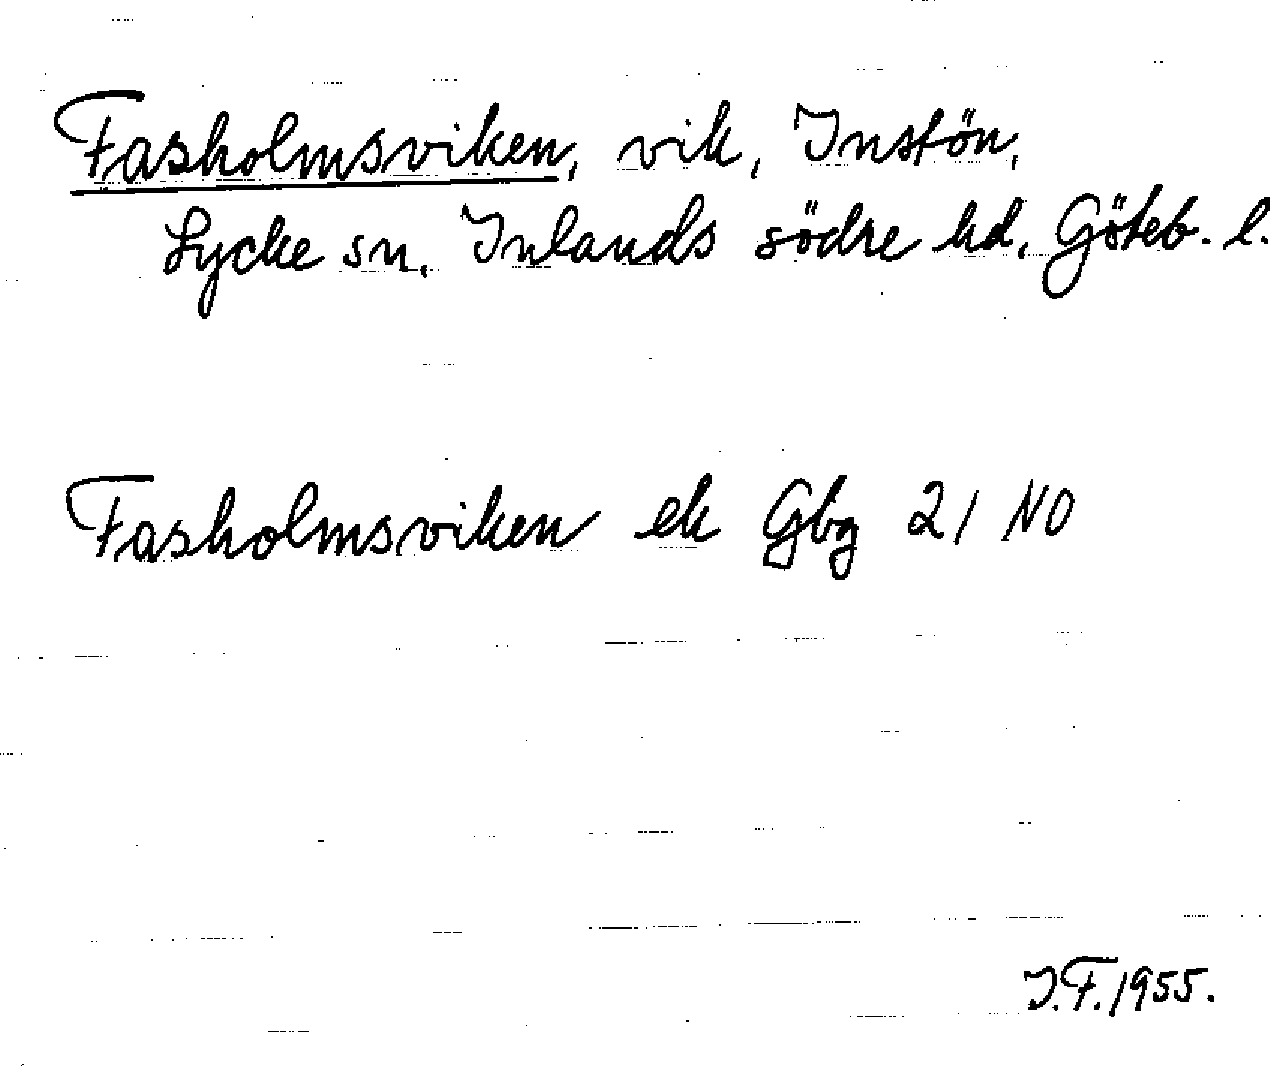 Fasholmsviken, vik, Instön,
Lycke sn, Inlands södre hd, Göteb. l.
Fasholmsviken ek Gbg 21 NO
I.F. 1955.